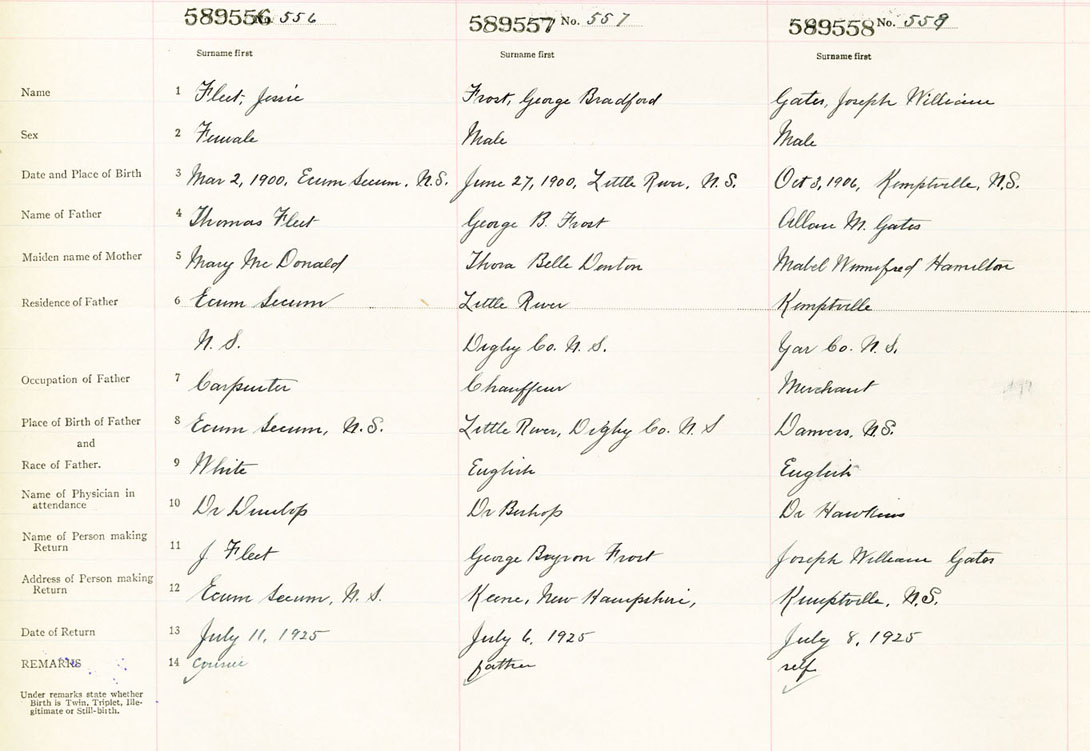 589556 No. 556 589557 No. 557 589558 No. 558
Surname first Surname first Surname first
Name 1 Fleet, Jessie Frost, George Bradford Gates, Joseph William
Sex 2 Female Male Male
Date and Place of Birth 3 Mar 2, 1900, Ecum Secum, N.S. June 27, 1900, Little River, N.S. Oct 3, 1906, Kemptville, N.S.
Name of Father 4 Thomas Fleet George B. Frost Allan M. Gates
Maiden name of Mother 5 Mary McDonald Thora Belle Denton Mabel Winnifred Hamilton
Residence of Father 6 Ecum Secum Little River Kemptville
N.S. Digby Co. N.S. Yar Co. N.S.
Occupation of Father 7 Carpenter Chauffeur Merchant
Place of Birth of Father 8 Ecum Secum, N.S. Little River, Digby Co. N.S Danvers, N.S.
and
Race of Father. 9 White English English
Name of Physician in
attendance 10 Dr Dunlop Dr Bishop Dr Hawkins
Name of Person making
Return 11 J. Fleet George Byron Frost Joseph William Gates
Address of Person making
Return 12 Ecum Secum, N.S. Keene, New Hampshire, Kemptville, N.S.
Date of Return 13 July 11, 1925 July 6, 1925 July 8, 1925
REMARKS 14 father self
Under remarks state whether
Birth is Twin, Triplet, Ille-
gitimate or Still-birth.